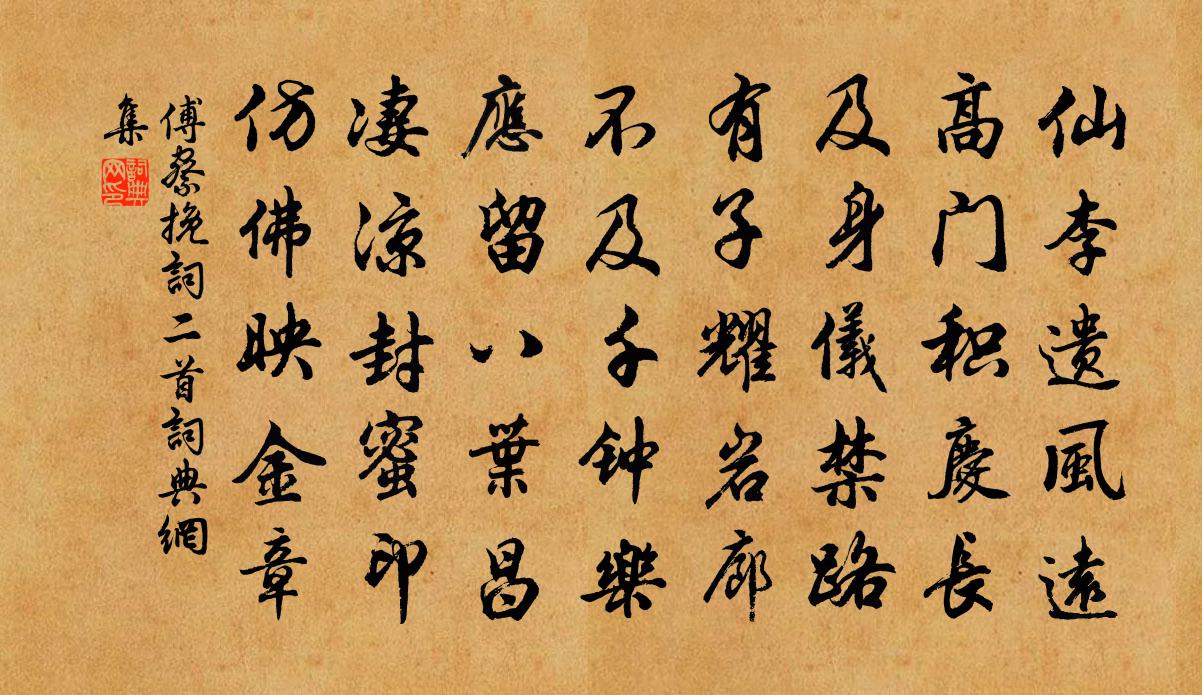 仙李遗風遠
高门积慶長
及身儀禁路
有子耀岩廊
不及千钟樂
應留八葉昌
凄凉封蜜印
仿佛映金章
傅察挽詞二首詞典網
集
詞典
网印